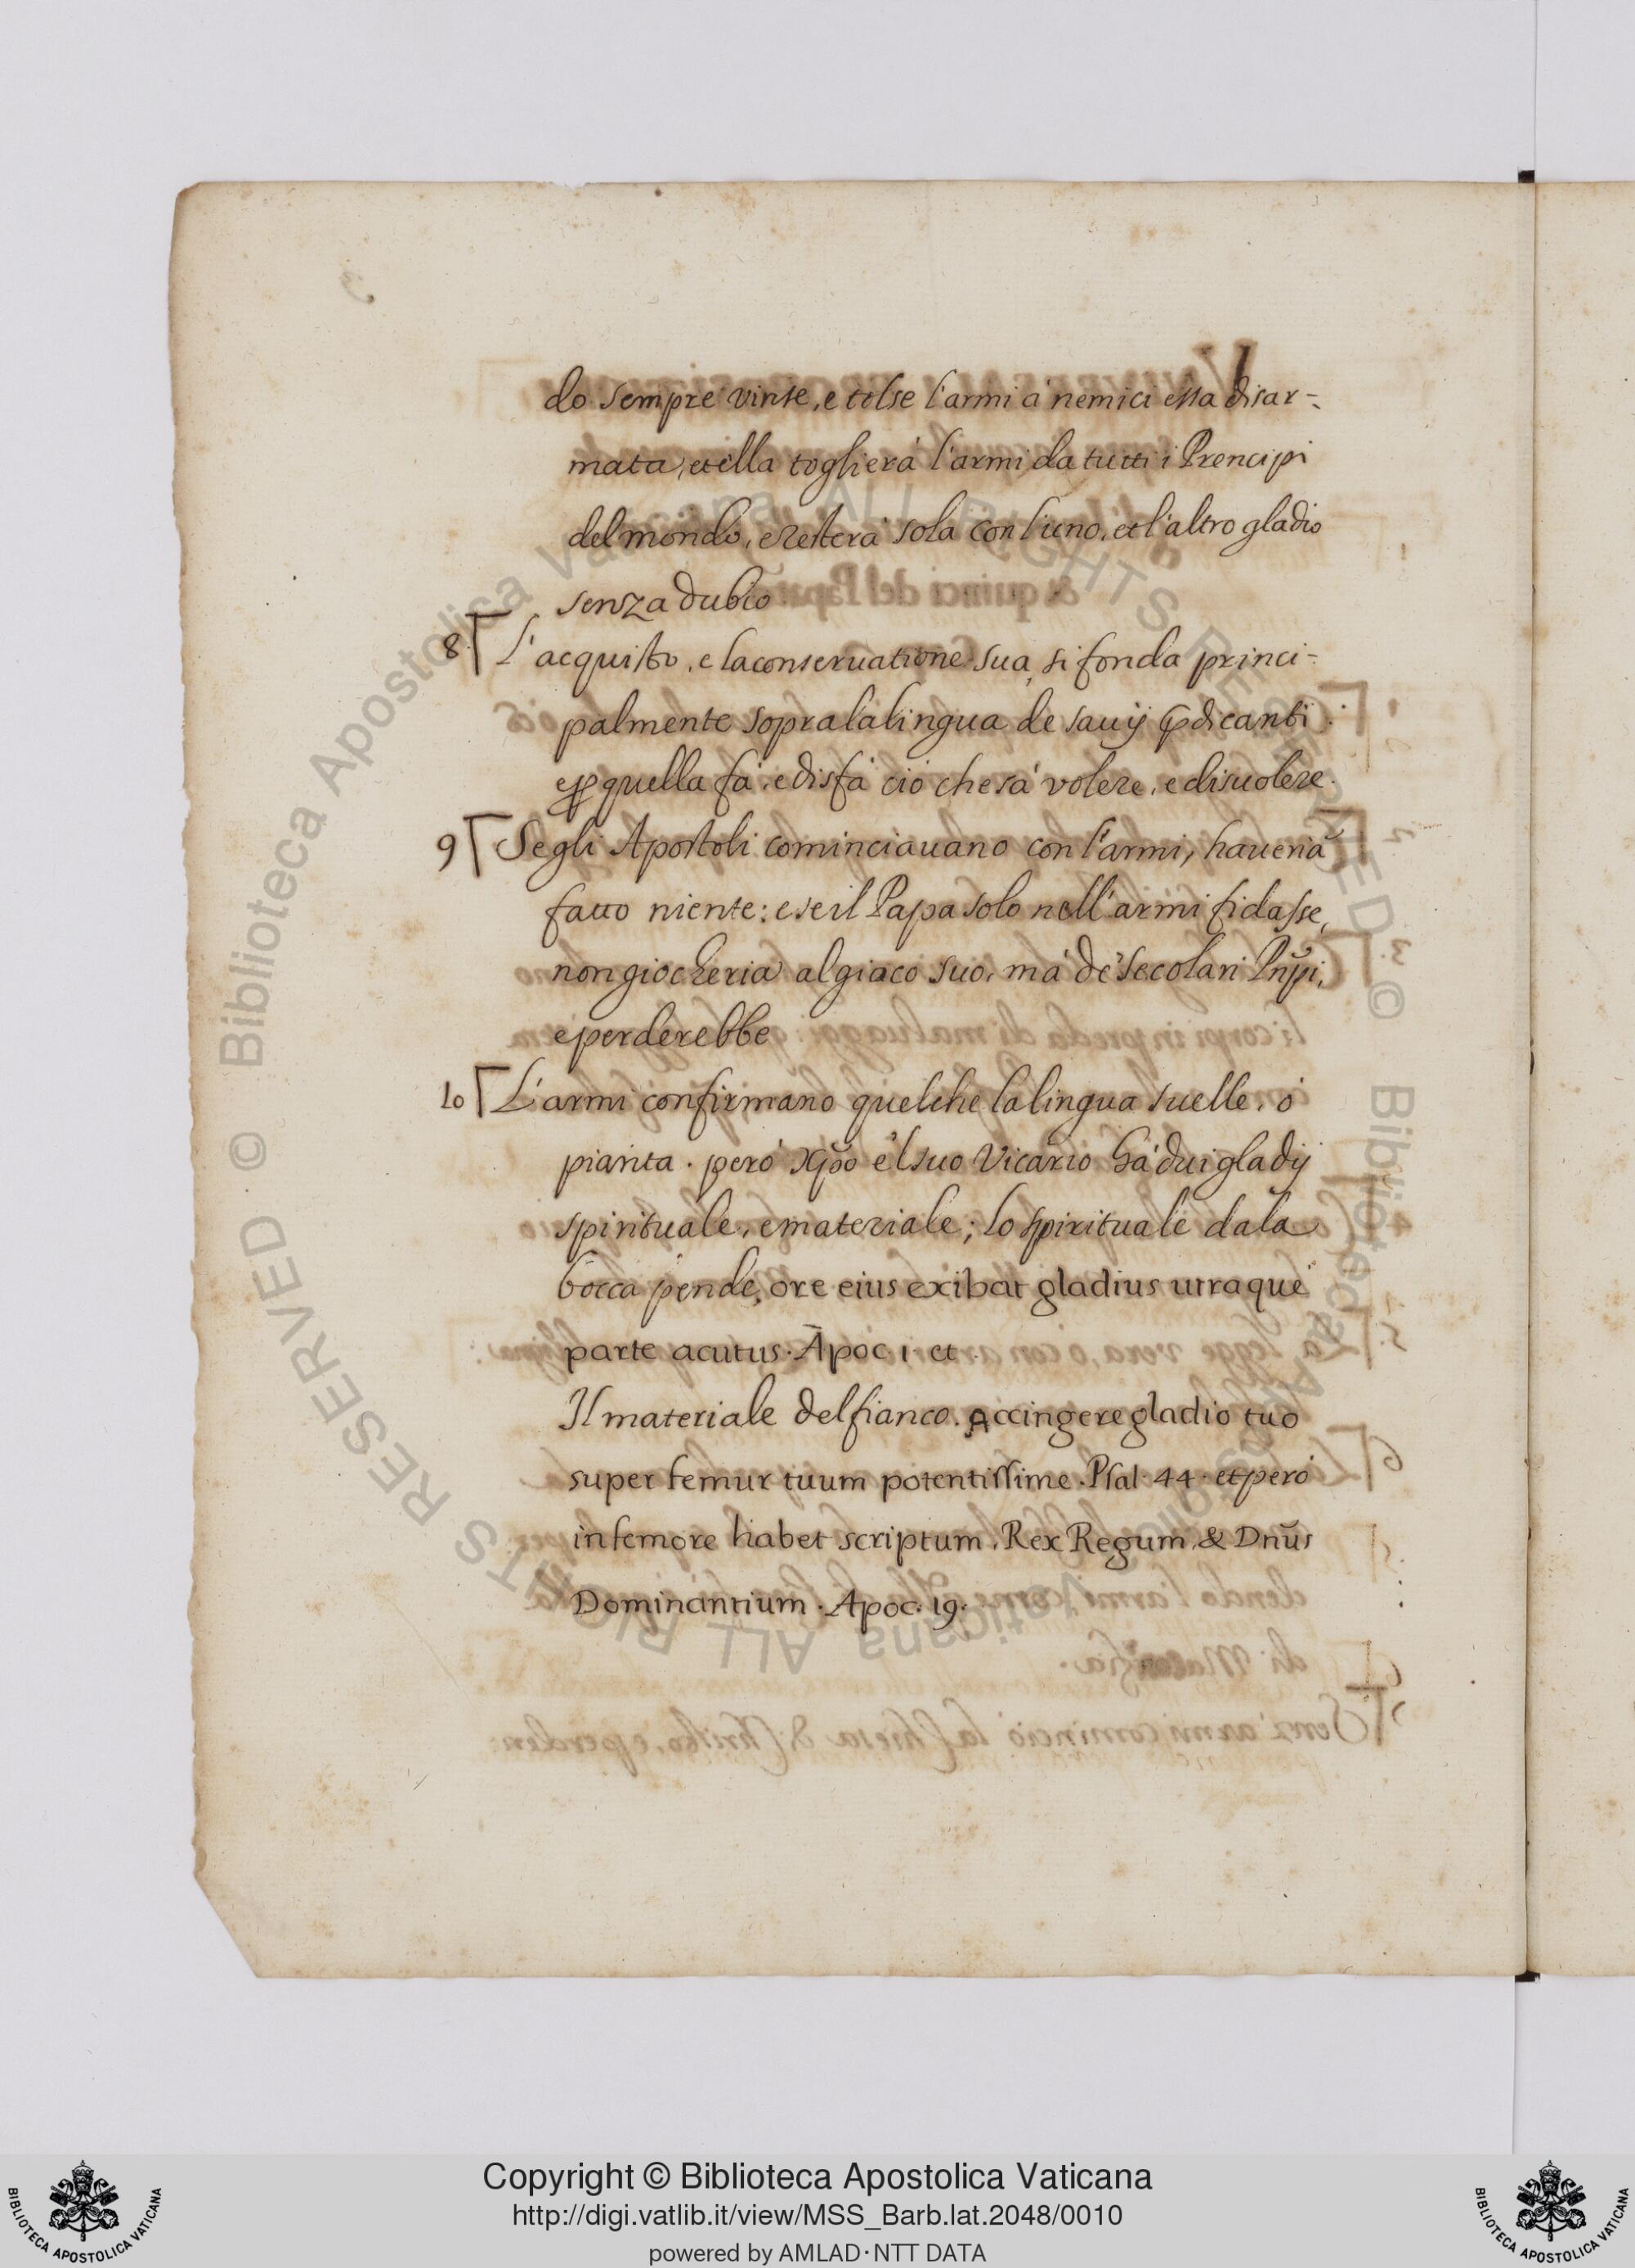 do sempre vinse, e tolse l'armi à nemici essa disar-
mata, et ella toglierà l'armi da tutti i Prencipi
del mondo, e restera sola con l'uno, et l'altro gladio
senza dubio
8 L'acquisto, e la conseruatione sua, si fonda princi-
palmente sopra la lingua de sauij p̃dicanti
e ꝑ quella fà, e disfà ciò che sà volere, e disuolere.
9 Se gli Apostoli cominciauano con l'armi, haueriã
fatto niente: e se il Papa solo nell'armi fidasse,
non giocheria al giaco suo, mà de' secolari Pñpi,
e perderebbe
10 L'armi confirmano quel che la lingua suelle, ò
pianta. però Xp̃o e'l suo Vicario hà dui gladij
spirituale, e materiale; lo spirituale da la
bocca pende, ore eius exibat gladius utraque
parte acutus. Apoc. 1. et
Il materiale del fianco. Accingere gladio tuo
super femur tuum potentissime. Psal. 44. et però
in femore habet scriptum, Rex Regum, & Dñus
Dominantium. Apoc. 19.
Copyright © Biblioteca Apostolica Vaticana
http://digi.vatlib.it/view/MSS_Barb.lat.2048/0010
powered by AMLAD·NTT DATA
BIBLIOTECA APOSTOLICA VATICANA
BIBLIOTECA APOSTOLICA VATICANA
© Biblioteca Apostolica Vaticana ALL RIGHTS RESERVED © Biblioteca Apostolica Vaticana ALL RIGHTS RESERVED